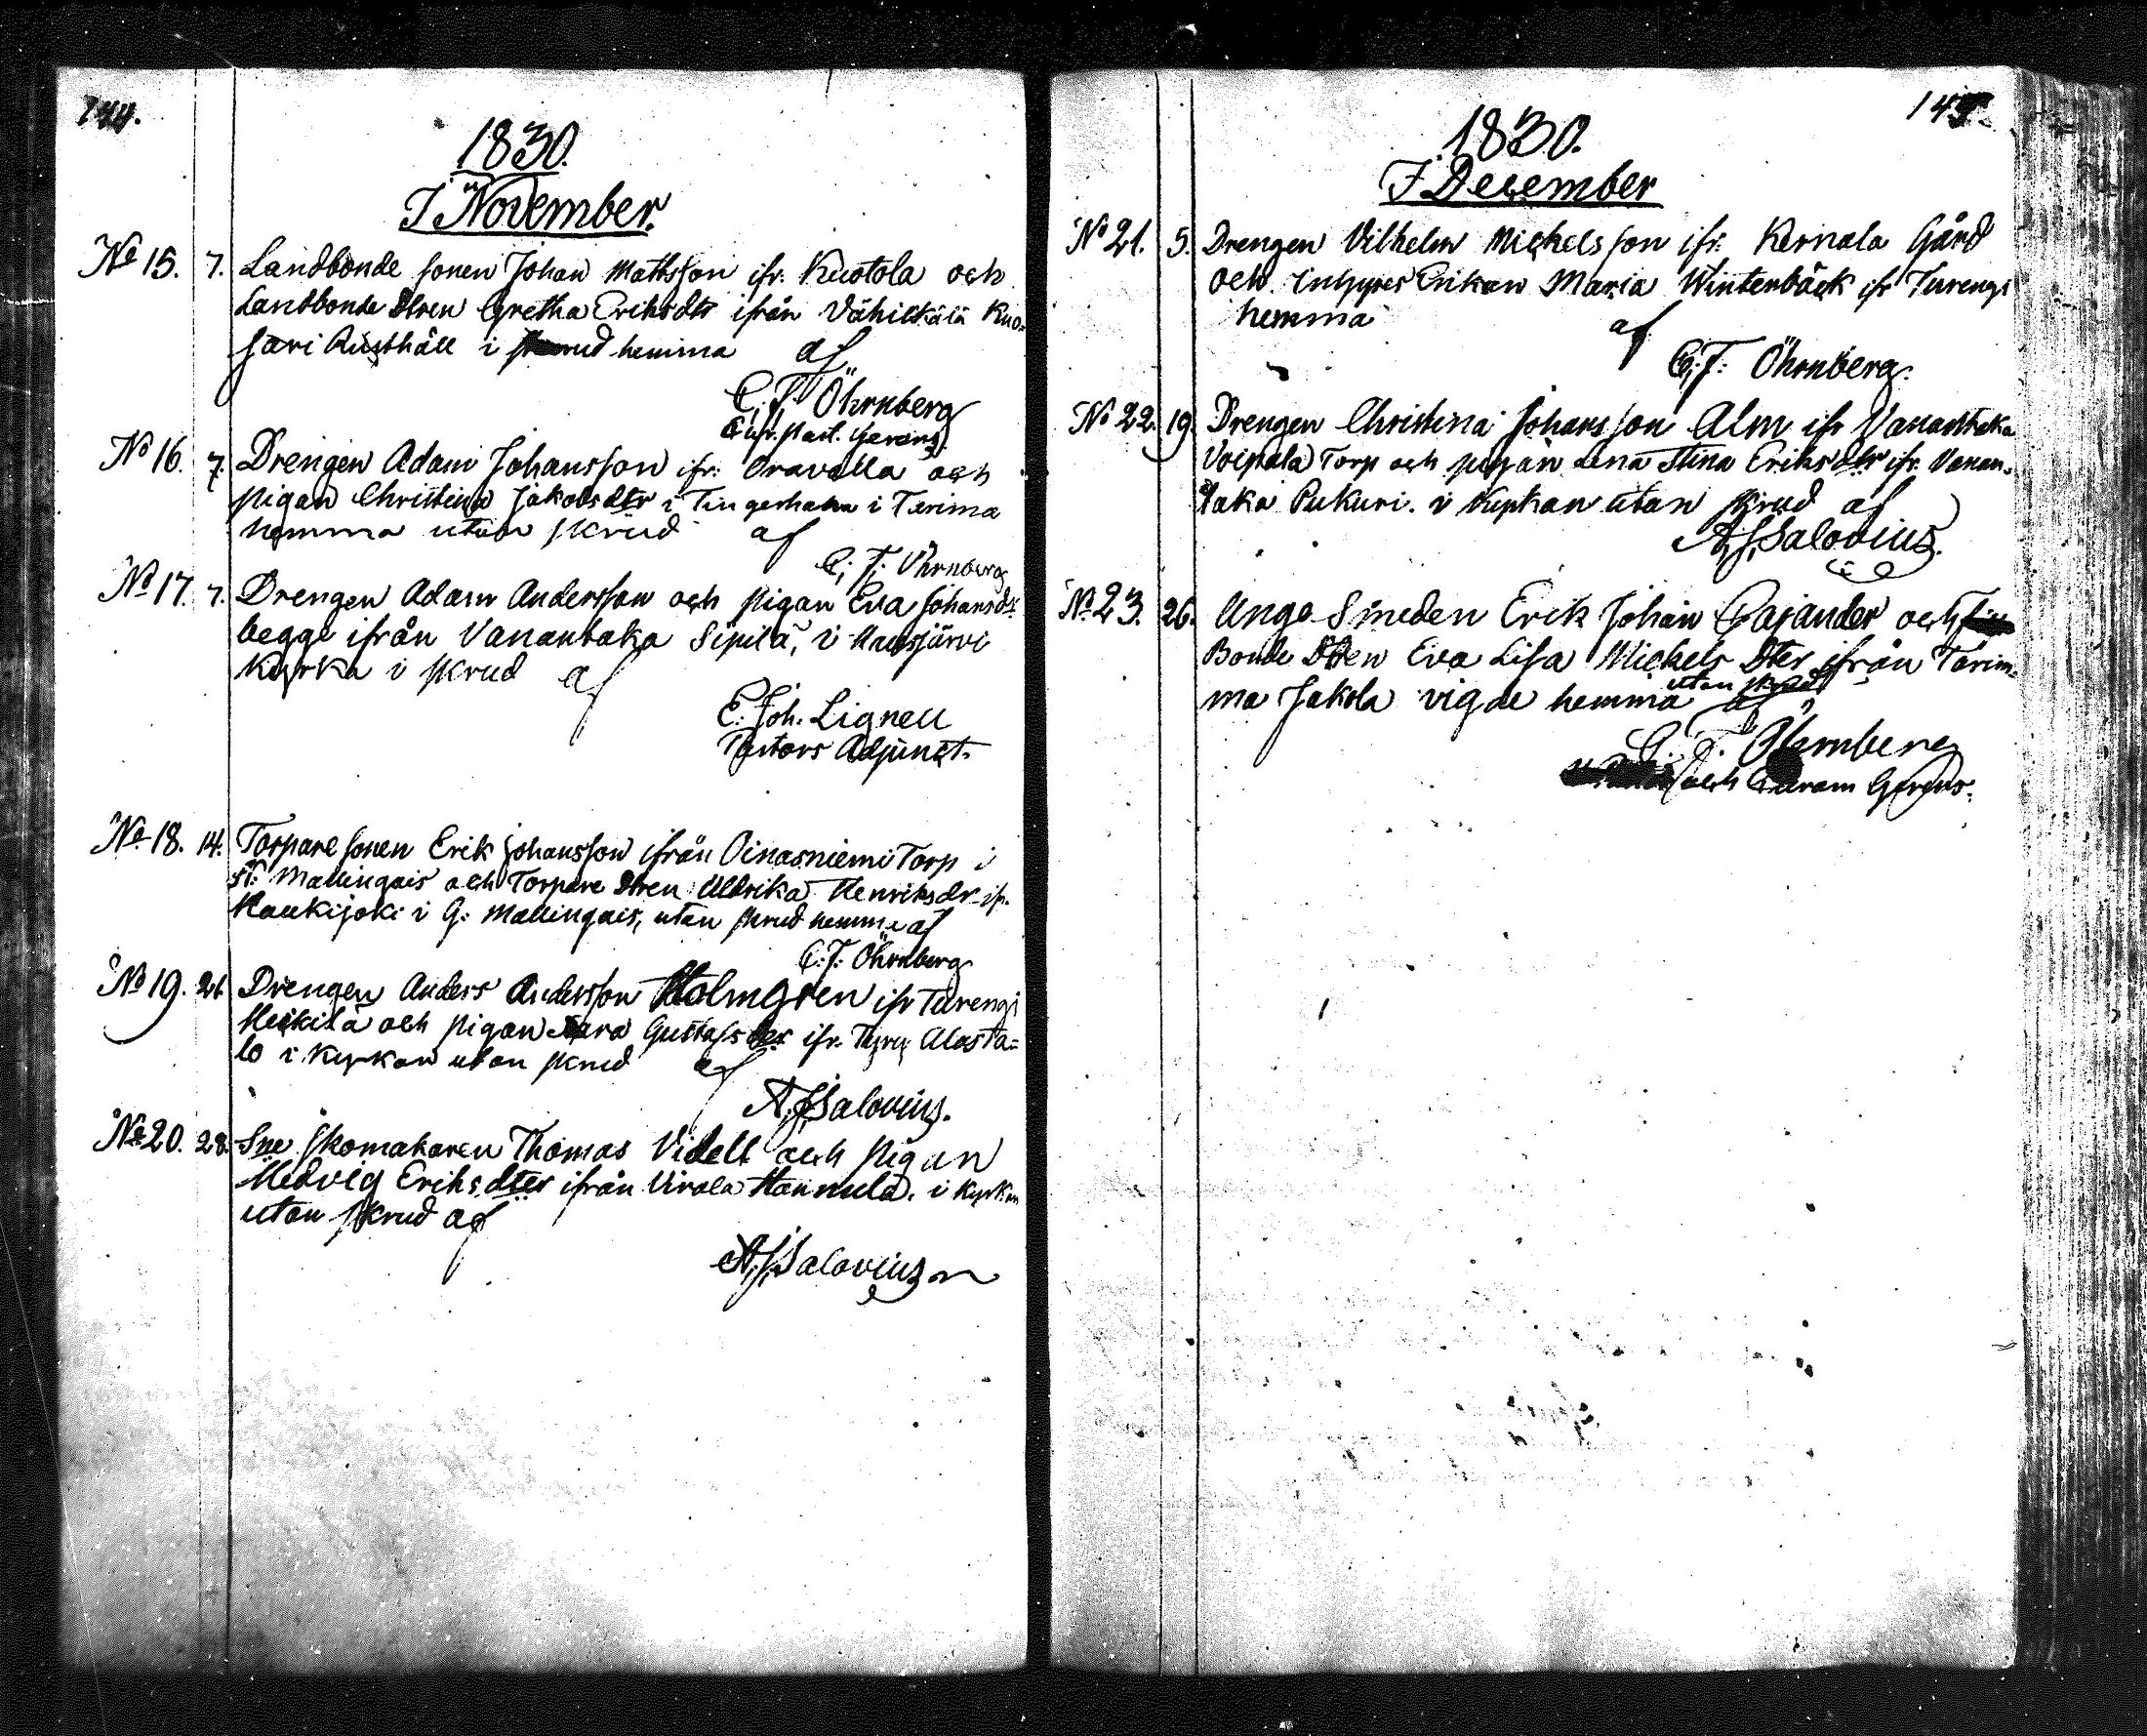 144.
1830.
I November.
No 15. 7. Landbonde sonen Johan Mattsson ifr. Kuotola och
Landbonde Dtren Gretha Eriksdtr ifrån Vähikkälä Kuo=
jari Rusthåll i skrud hemma af
C. F. Öhrnberg
No 16. 7. Drengen Adam Johansson ifr. Oravilla och
pigan Christina Jakobsdter i i Turima
hemma utan skrud af
C. F. Öhrnberg
No 17. 7. Drengen Adam Andersson och pigan Eva Johansdr
begge ifrån Vanantaka Sipilä, i Hausjärvi
Kyrka i skrud af
E. Joh. Lignell
Pastors Adjunct.
No 18. 14. Torpare sonen Erik Johansson ifrån Oinasniemi Torp i
St. Mallingais och Torpare Dtren Uldrika Henriksdr ifr.
Haukijoki i G. Mallingais, utan skrud hemma af
C. F. Öhrnberg
No 19. 21. Drengen Anders Andersson Holmgren ifr Turengi
Heikilä och pigan Sara Gustafsdter ifr. Alasta=
lo i Kyrkan utan skrud af
A. J. Salovius.
No 20. 28. Skomakaren Thomas Videll och pigan
Hedvig Eriksdter ifrån Virala Hannula. i Kyrkan
utan skrud af
A. J. Salovius
145
1830.
I December
No 21. 5. Drengen Vilhelm Michelsson ifr. Kernala Gård
och Maria Wintenbäck ifr Turengi
hemma af
C. F. Öhrnberg.
No 22. 19. Drengen Christina Johansson Alm ifr Vanantaka
Voipala Torp och pigan Lena Stina Eriksdtr ifr. Vanan=
taka Pukuri. i Kyrkan utan skrud af
A. J. Salovius.
No 23. 26. Unge Smeden Erik Johan Pajander och
Bonde Dtren Eva Lisa Michels Dter ifrån Tarim=
utan skrud
ma Jakola vigde hemma af
C. F. Öhrnberg
och